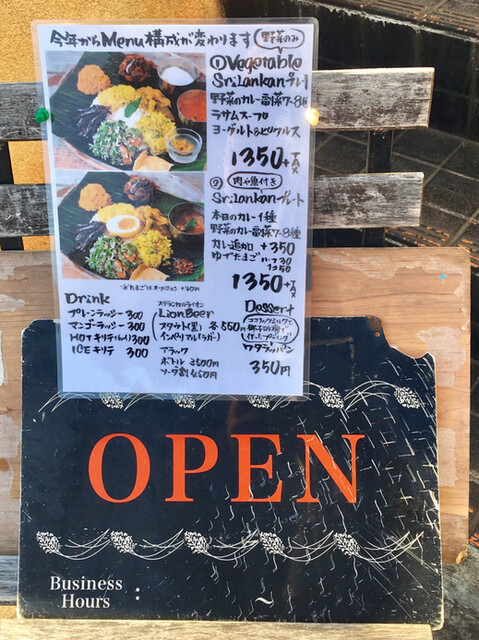 今年からMenu構成が変わります
野菜のみ
① Vegetable
SriLankanプレート
野菜のカレー副菜7-8種
ラサムスープ
ヨーグルト&ピクルス
1350+
② 肉や魚付き
SriLankanプレート
本日のカレー1種
野菜のカレー副菜7-8種
カレー追加 +350
ゆでたまご ハーフ30
1350+
Drink
プレーンラッシー 300
マンゴーラッシー 300
HOTキリテ 300
ICEキリテ 300
スリランカのライオン
LionBeer
スタウト(黒) 各550円
インペリアル(ラガー)
アラック
ボトル 2500円
ソーダ割 450円
Dessert
ココナッツミルクと
椰子の蜜で
作ったプリン
ワタラッパン
350円
OPEN
Business
Hours : ~